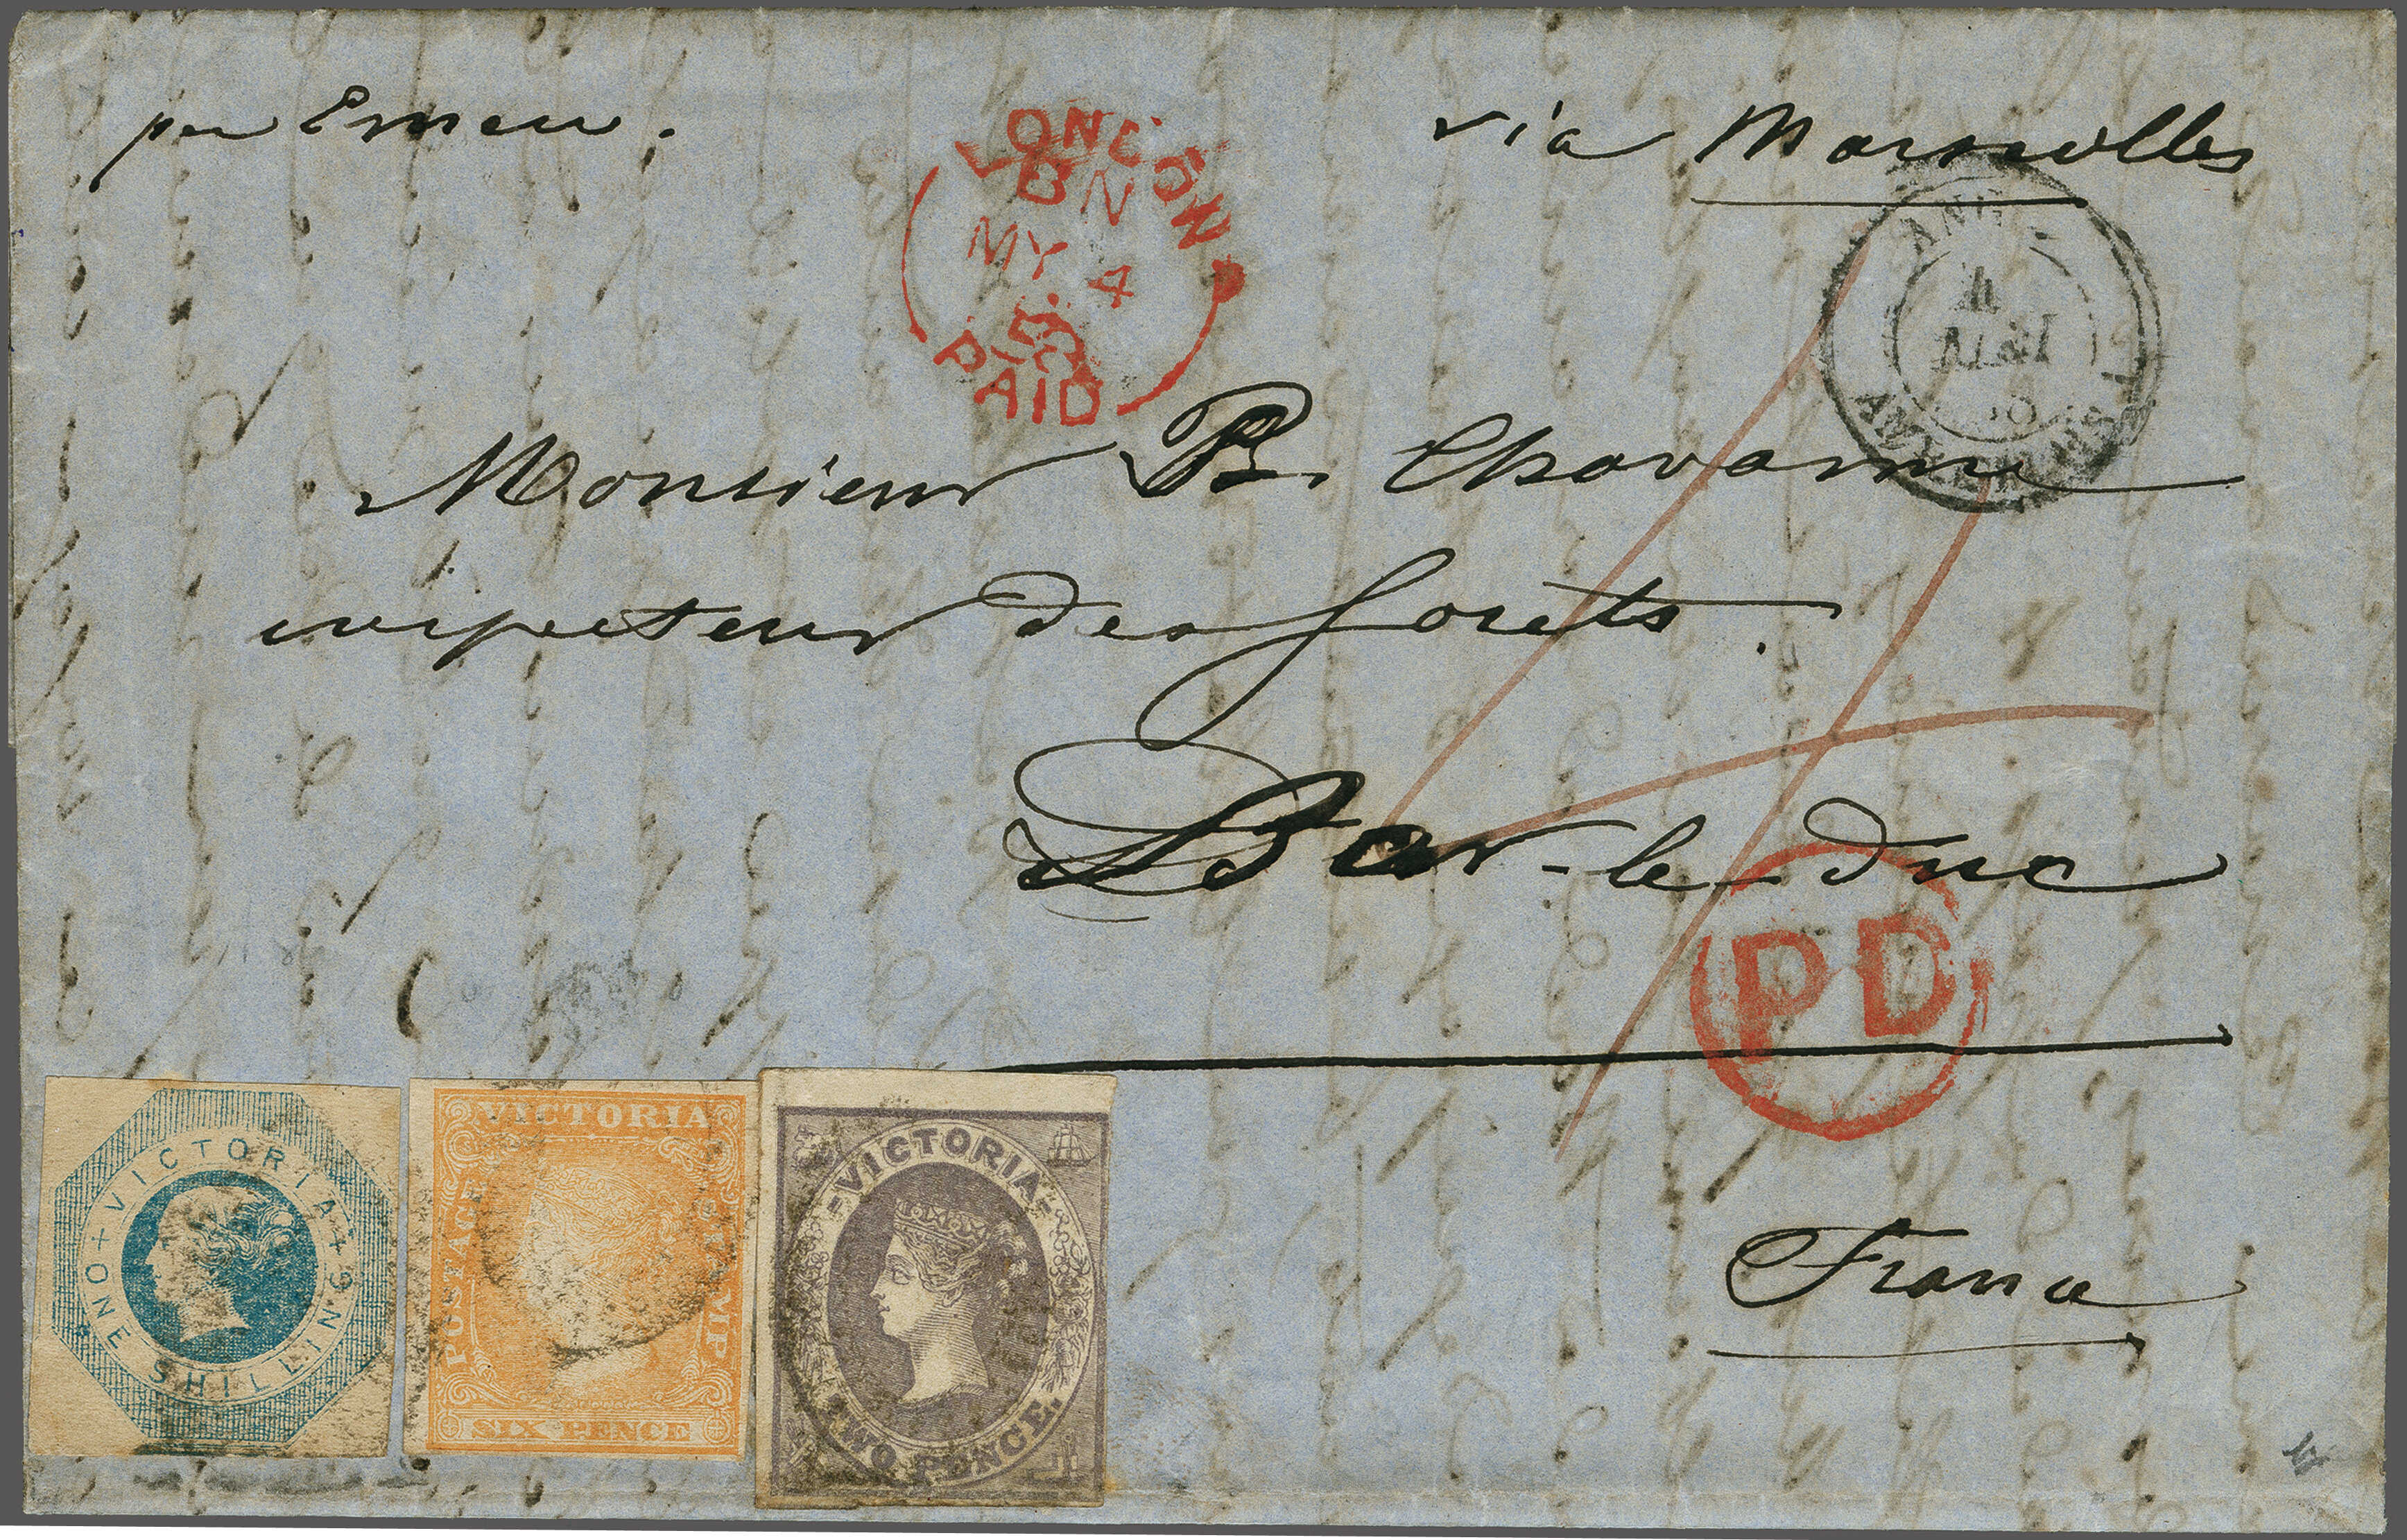 per Emeu.
via Marseilles
LONDON
BN
MY 4
PAID
ANGL.
4
MAI
AMB. CALAIS
Monsieur P. Chavanne
inspecteur des forêts.
Bar-le-Duc
PD
France
VICTORIA
ONE SHILLING
VICTORIA
POSTAGE
STAMP
SIX PENCE
VICTORIA
TWO PENCE.